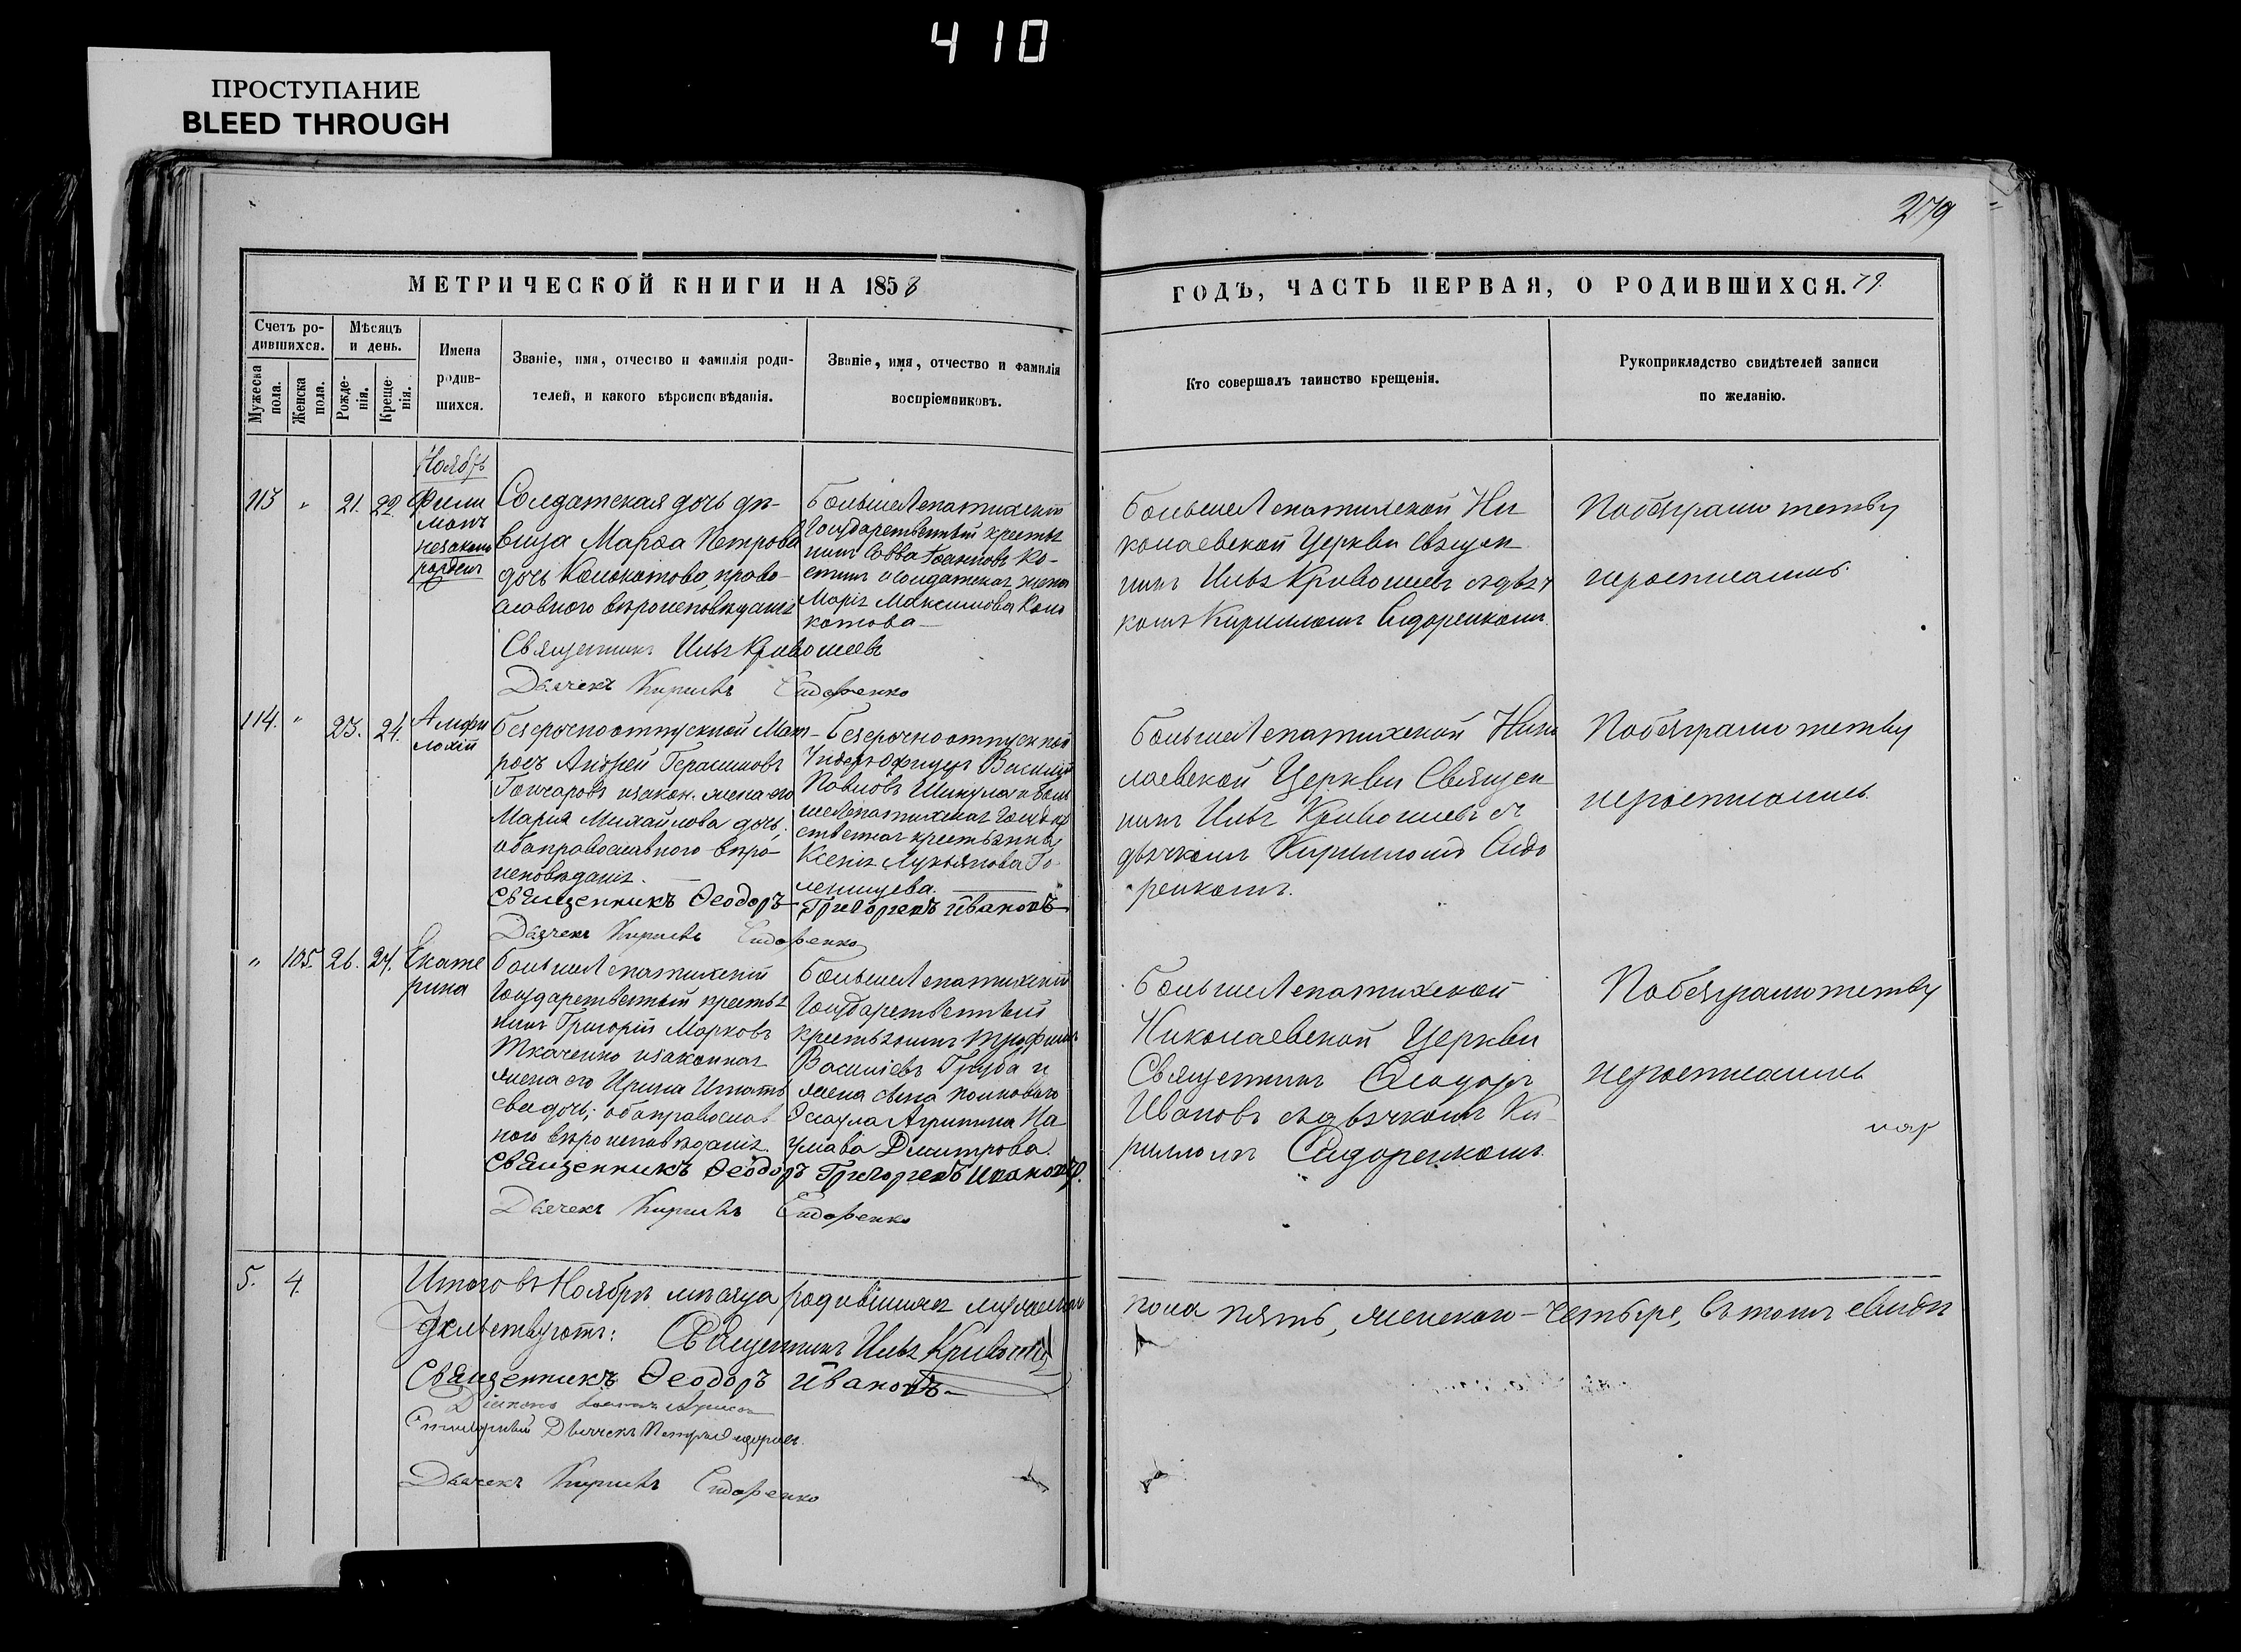 410
ПРОСТУПАНИЕ
BLEED THROUGH
279
МЕТРИЧЕСКОЙ КНИГИ НА 1858
ГОДЪ, ЧАСТЬ ПЕРВАЯ, О РОДИВШИХСЯ. 79.
Счетъ ро-
дившихся.
Мѣсяцъ
и день.
Мужеска
пола.
Женска
пола.
Рожде-
нія.
Креще-
нія.
Имена
родив-
шихся.
Званіе, имя, отчество и фамилія роди-
телей, и какого вѣроисповѣданія.
Званіе, имя, отчество и фамилія
воспріемниковъ.
Кто совершалъ таинство крещенія.
Рукоприкладство свидѣтелей записи
по желанію.
Ноябрь
113 " 21. 22.
Фили
монъ
незакон
рожден
Солдатская дочь дѣ-
вица Марѳа Петрова
дочь Колокотова, право-
славнаго вѣроисповѣданія
БольшеЛепатихскій
Государственный кресть
нинъ Савва Іоанновъ Ко-
стин и солдатская жена
Марія Максимова Коло
котова
БольшеЛепатихской Ни
колаевской Церкви Священ
никъ Илья Кривошеевъ съ дьяч
комъ Кирилломъ Сидоренкомъ.
По безграмотству
не росписались.
Священникъ Илья Кривошеевъ
Дьячекъ Кириллъ Сидоренко
114. " 23. 24.
Амфи
лохій
Безсрочноотпускной Мат-
росъ Андрей Герасимовъ
Гончаровъ и закон. жена его
Марія Михайлова дочь.
оба православнаго вѣро-
исповѣданія.
Безсрочноотпускной
Унтеръ Офицеръ Василій
Павловъ Шикула и Боль
шеЛепатихская Государ
ственная крестьянка
Ксенія Лукьянова Го-
ленищева.
БольшеЛепатихской Нико
лаевской Церкви Священ
никъ Илья Кривошеевъ съ
дьячкомъ Кирилломъ Сидо
ренкомъ.
По безграмотству
не росписались.
Священникъ Ѳеодоръ Григорьевъ Ивановъ
Дьячекъ Кириллъ Сидоренко
" 105. 26. 27.
Екате
рина
БольшеЛепатихскій
Государственный крестья
нинъ Григорій Марковъ
Ткаченко и законная
жена его Ирина Игнать
ева дочь; оба православ
наго вѣроисповѣданія.
БольшеЛепатихскій
Государственный
крестьянинъ Трофимъ
Василіевъ Груба и
жена сына полковаго
Эсаула Агрипина На
умова Дмитрова.
БольшеЛепатихской
Николаевской Церкви
Священникъ Ѳеодоръ
Ивановъ съ дьячкомъ Ки-
рилломъ Сидоренкомъ.
По безграмотству
не росписались
Священникъ Ѳеодоръ Григорьевъ Ивановъ.
Дьячекъ Кириллъ Сидоренко
5. 4.
Итого въ Ноябрѣ мѣсяцѣ родившихся мужескаго
пола пять, женскаго - четыре, въ томъ свидѣ
тельствуютъ: Священникъ Илья Кривошеевъ
Священникъ Ѳеодоръ Ивановъ
Діаконъ
Дьячекъ Петръ
Дьячекъ Кириллъ Сидоренко